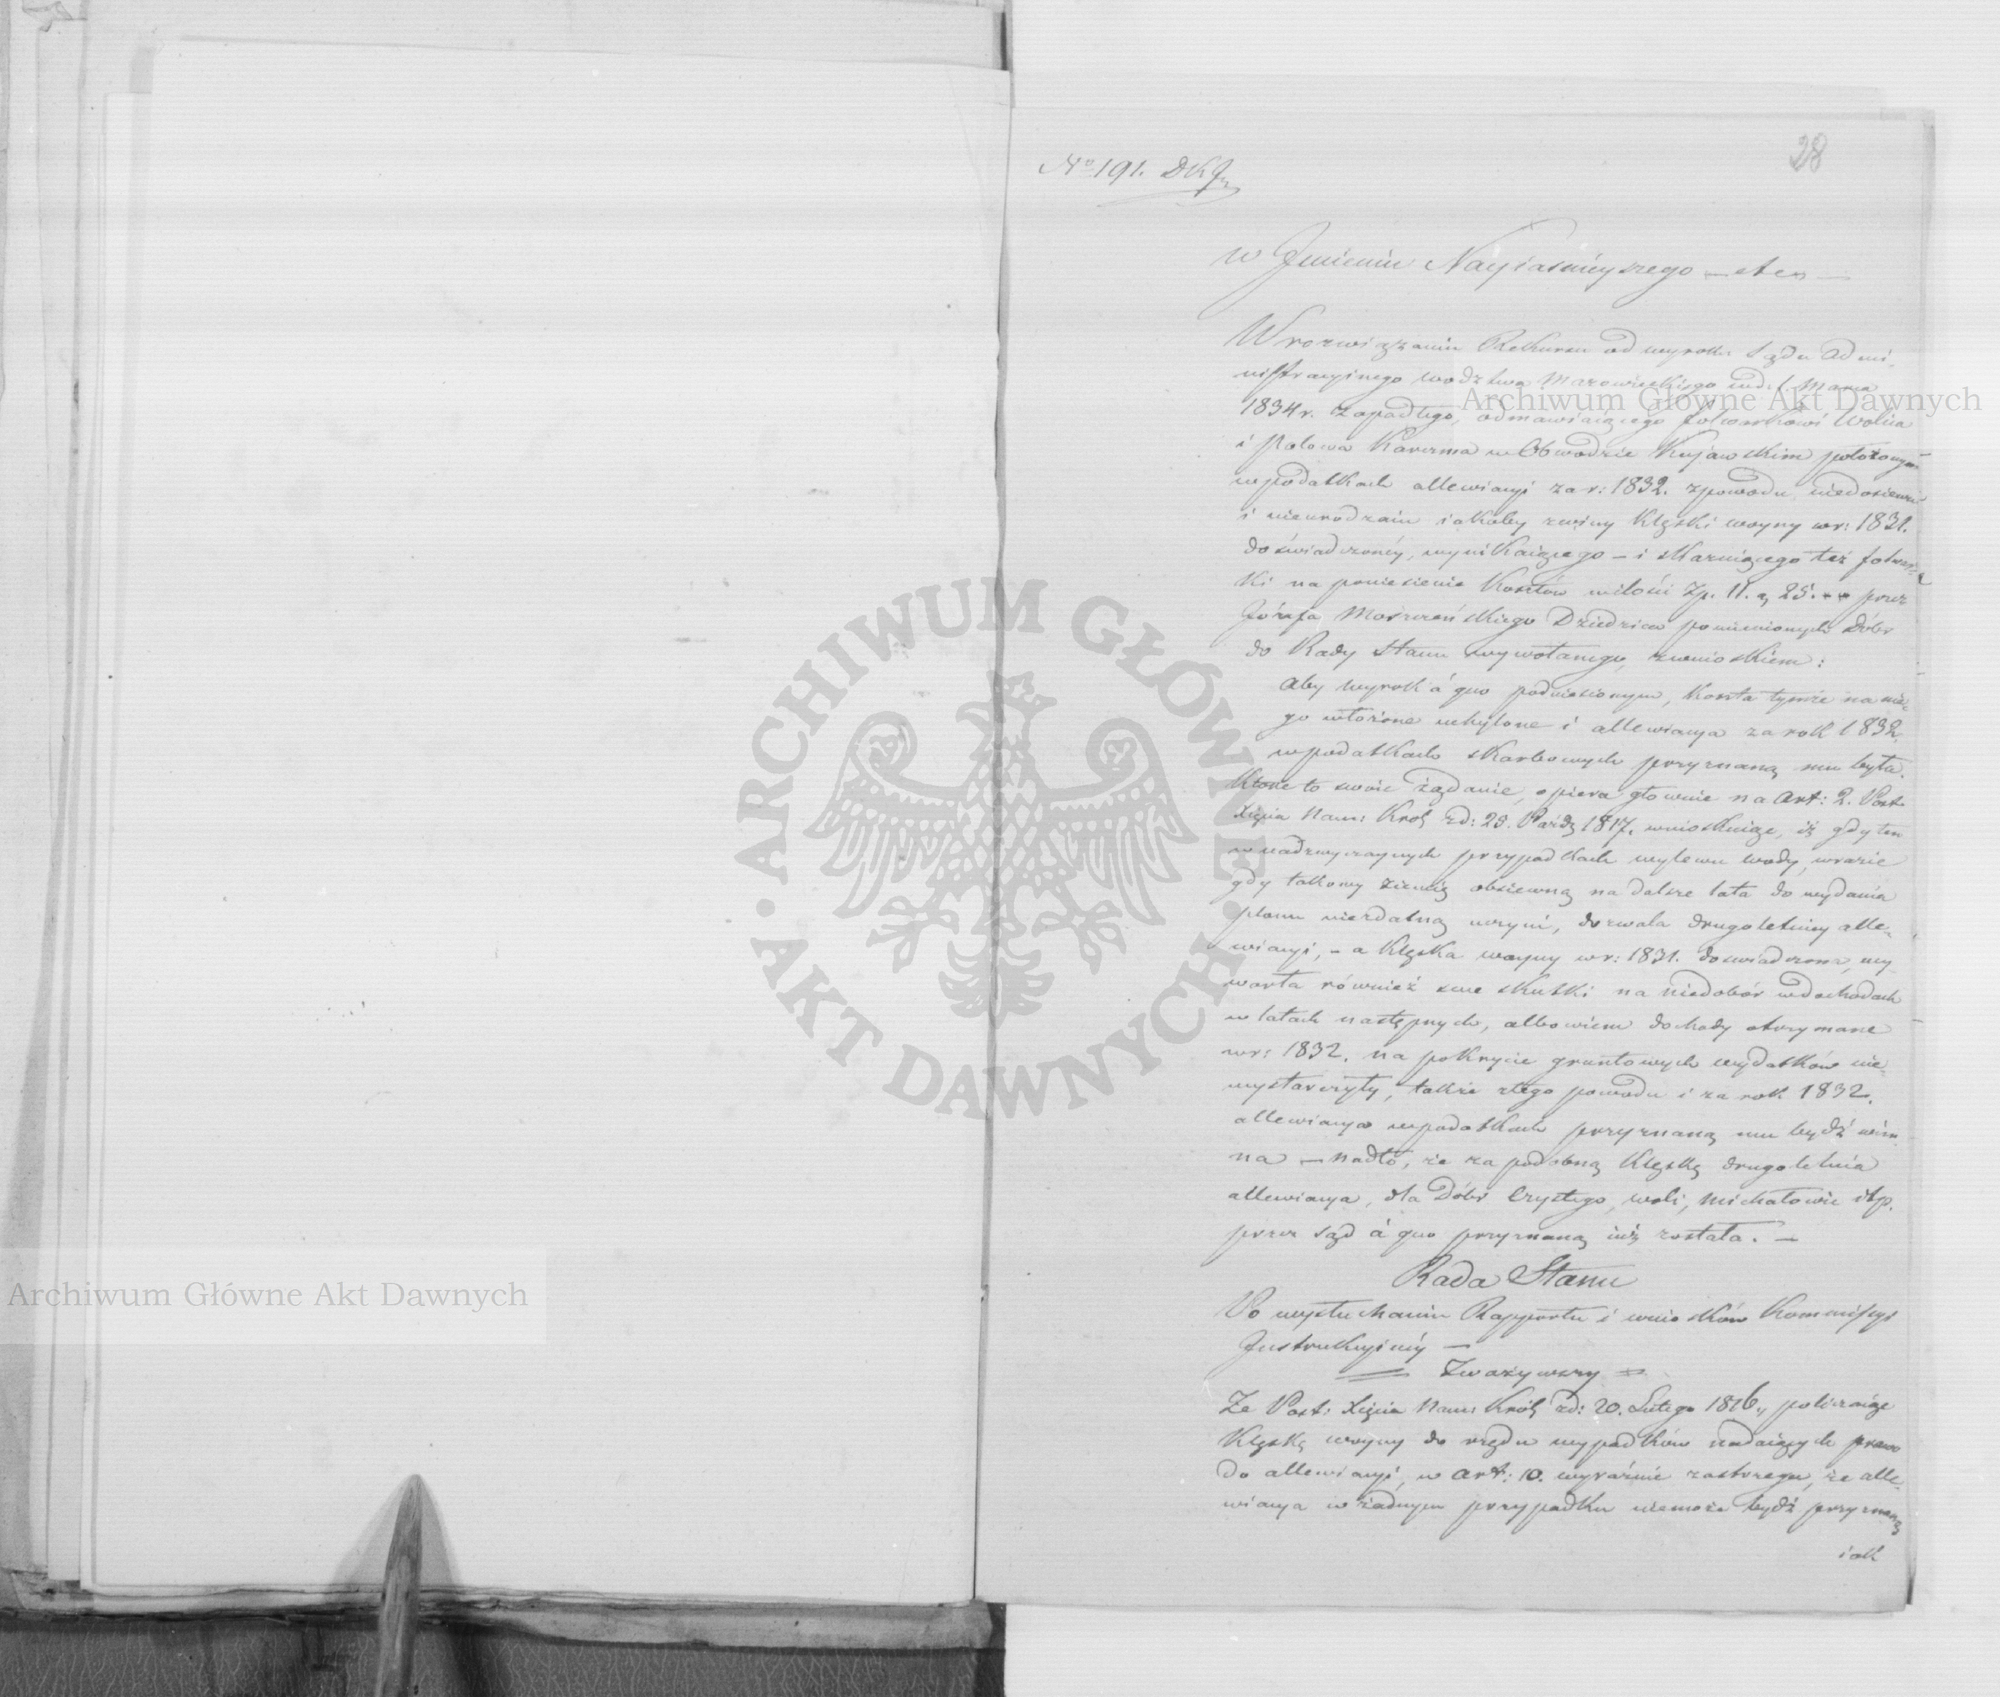 28
No 191. DKJ
w Jmieniu Nayiaśnieyszego — etc —
W rozwiązaniu Rekursu od wyroku Sądu Admi-
nistracyinego wodztwa Mazowieckiego w d: 1. Marca
1834 r. zapadłego, odmawiaiącego folwarkowi Wolica
i Połowa Karczma w Obwodzie Kujawskim położonym
w podatkach allewiacyi za r: 1832. z powodu niedosiewu
i nieurodzaiu iakoby z winy klęski woyny w r: 1831.
doświadczoney, wynikaiącego — i skazuiącego też folwar-
ki na poniesienie kosztów w ilości Zp. 11. g 25. przez
Józefa Moszczeńskiego Dziedzica pomienionych Dóbr
do Rady Stanu wywołanego, z wnioskiem:
Aby wyrok á quo podniesionym, koszta tymże na nie-
go włożone uchylone i allewiacya za rok 1832.
w podatkach skarbowych przyznaną mu była.
Które to swoie żądanie, opiera głownie na Art: 2. Post.
Xięcia Nam: Król z d: 25. Paźdz 1817. wnioskuiąc, iż gdy ten
w nadzwyczaynych przypadkach wylewu wody, w razie
gdy takowy ziemię obsiewną na dalsze lata do wydania
plonu niezdatną uczyni, dozwala drugoletniey alle-
wiacyi, – a klęska woyny w r: 1831. doswiadczona, wy-
warła również swe skutki na niedobór w dochodach
w latach następnych, albowiem dochody otrzymane
w r: 1832. na pokrycie gruntowych wydatków nie-
wystarczyły, także z tego powodu i za rok 1832.
allewiacya w podatkach przyznaną mu bydź win-
na — nadto, że za podobną klęskę drugoletnia
allewiacya, dla Dóbr Czystego, woli, Michałowic itp.
przez sąd á quo przyznaną iuż została. —
Rada Stanu
Po wysłuchaniu Rapportu i wniosków Kommissyi
Jnstrukcyiney —
Zważywszy
Że Post: Xięcia Nam: Król z d: 20. Lutego 1816., policzaiąc
klęskę woyny do rzędu wypadków nadaiących prawo
do allewiacyi, w Art: 10. wyraźnie zastrzega, że alle-
wiacya w żadnym przypadku niemoże bydź przyznaną
iak
Archiwum Główne Akt Dawnych
Archiwum Główne Akt Dawnych
ARCHIWUM GŁÓWNE · AKT DAWNYCH ·